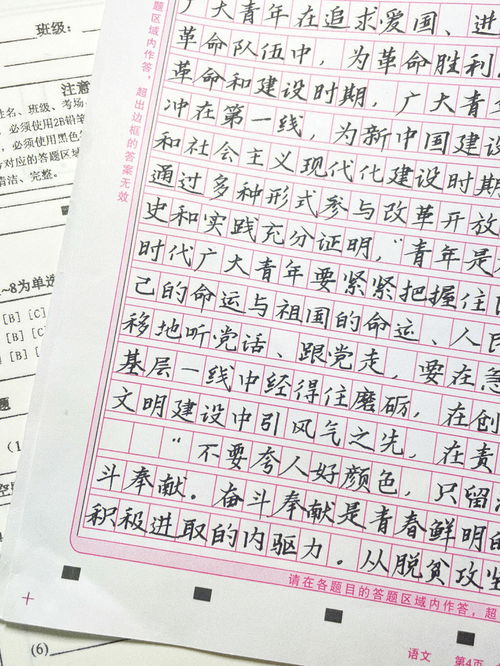 班级:
注意
姓名、班级、考场
必须使用2B铅笔
必须使用黑色
对应的答题区域
清洁、完整。
1~8为单选
[B] [C]
[B] [C]
[B]
题
(1
(6)
题区域内作答,超出边框的答案无效
广大青年在追求爱国、进
革命队伍中,为革命胜利
革命和建设时期,广大青
冲在第一线,为新中国建设
和社会主义现代化建设时期
通过多种形式参与改革开放
史和实践充分证明,“青年是
时代广大青年要紧紧把握住
己的命运与祖国的命运、人民
移地听党话、跟党走,要在急
基层一线中经得住磨砺,在创
文明建设中引风气之先,在责
“不要夸人好颜色,只留
斗奉献.奋斗奉献是青春鲜明的
积极进取的内驱力.从脱贫攻坚
请在各题目的答题区域内作答,超
语文 第4页